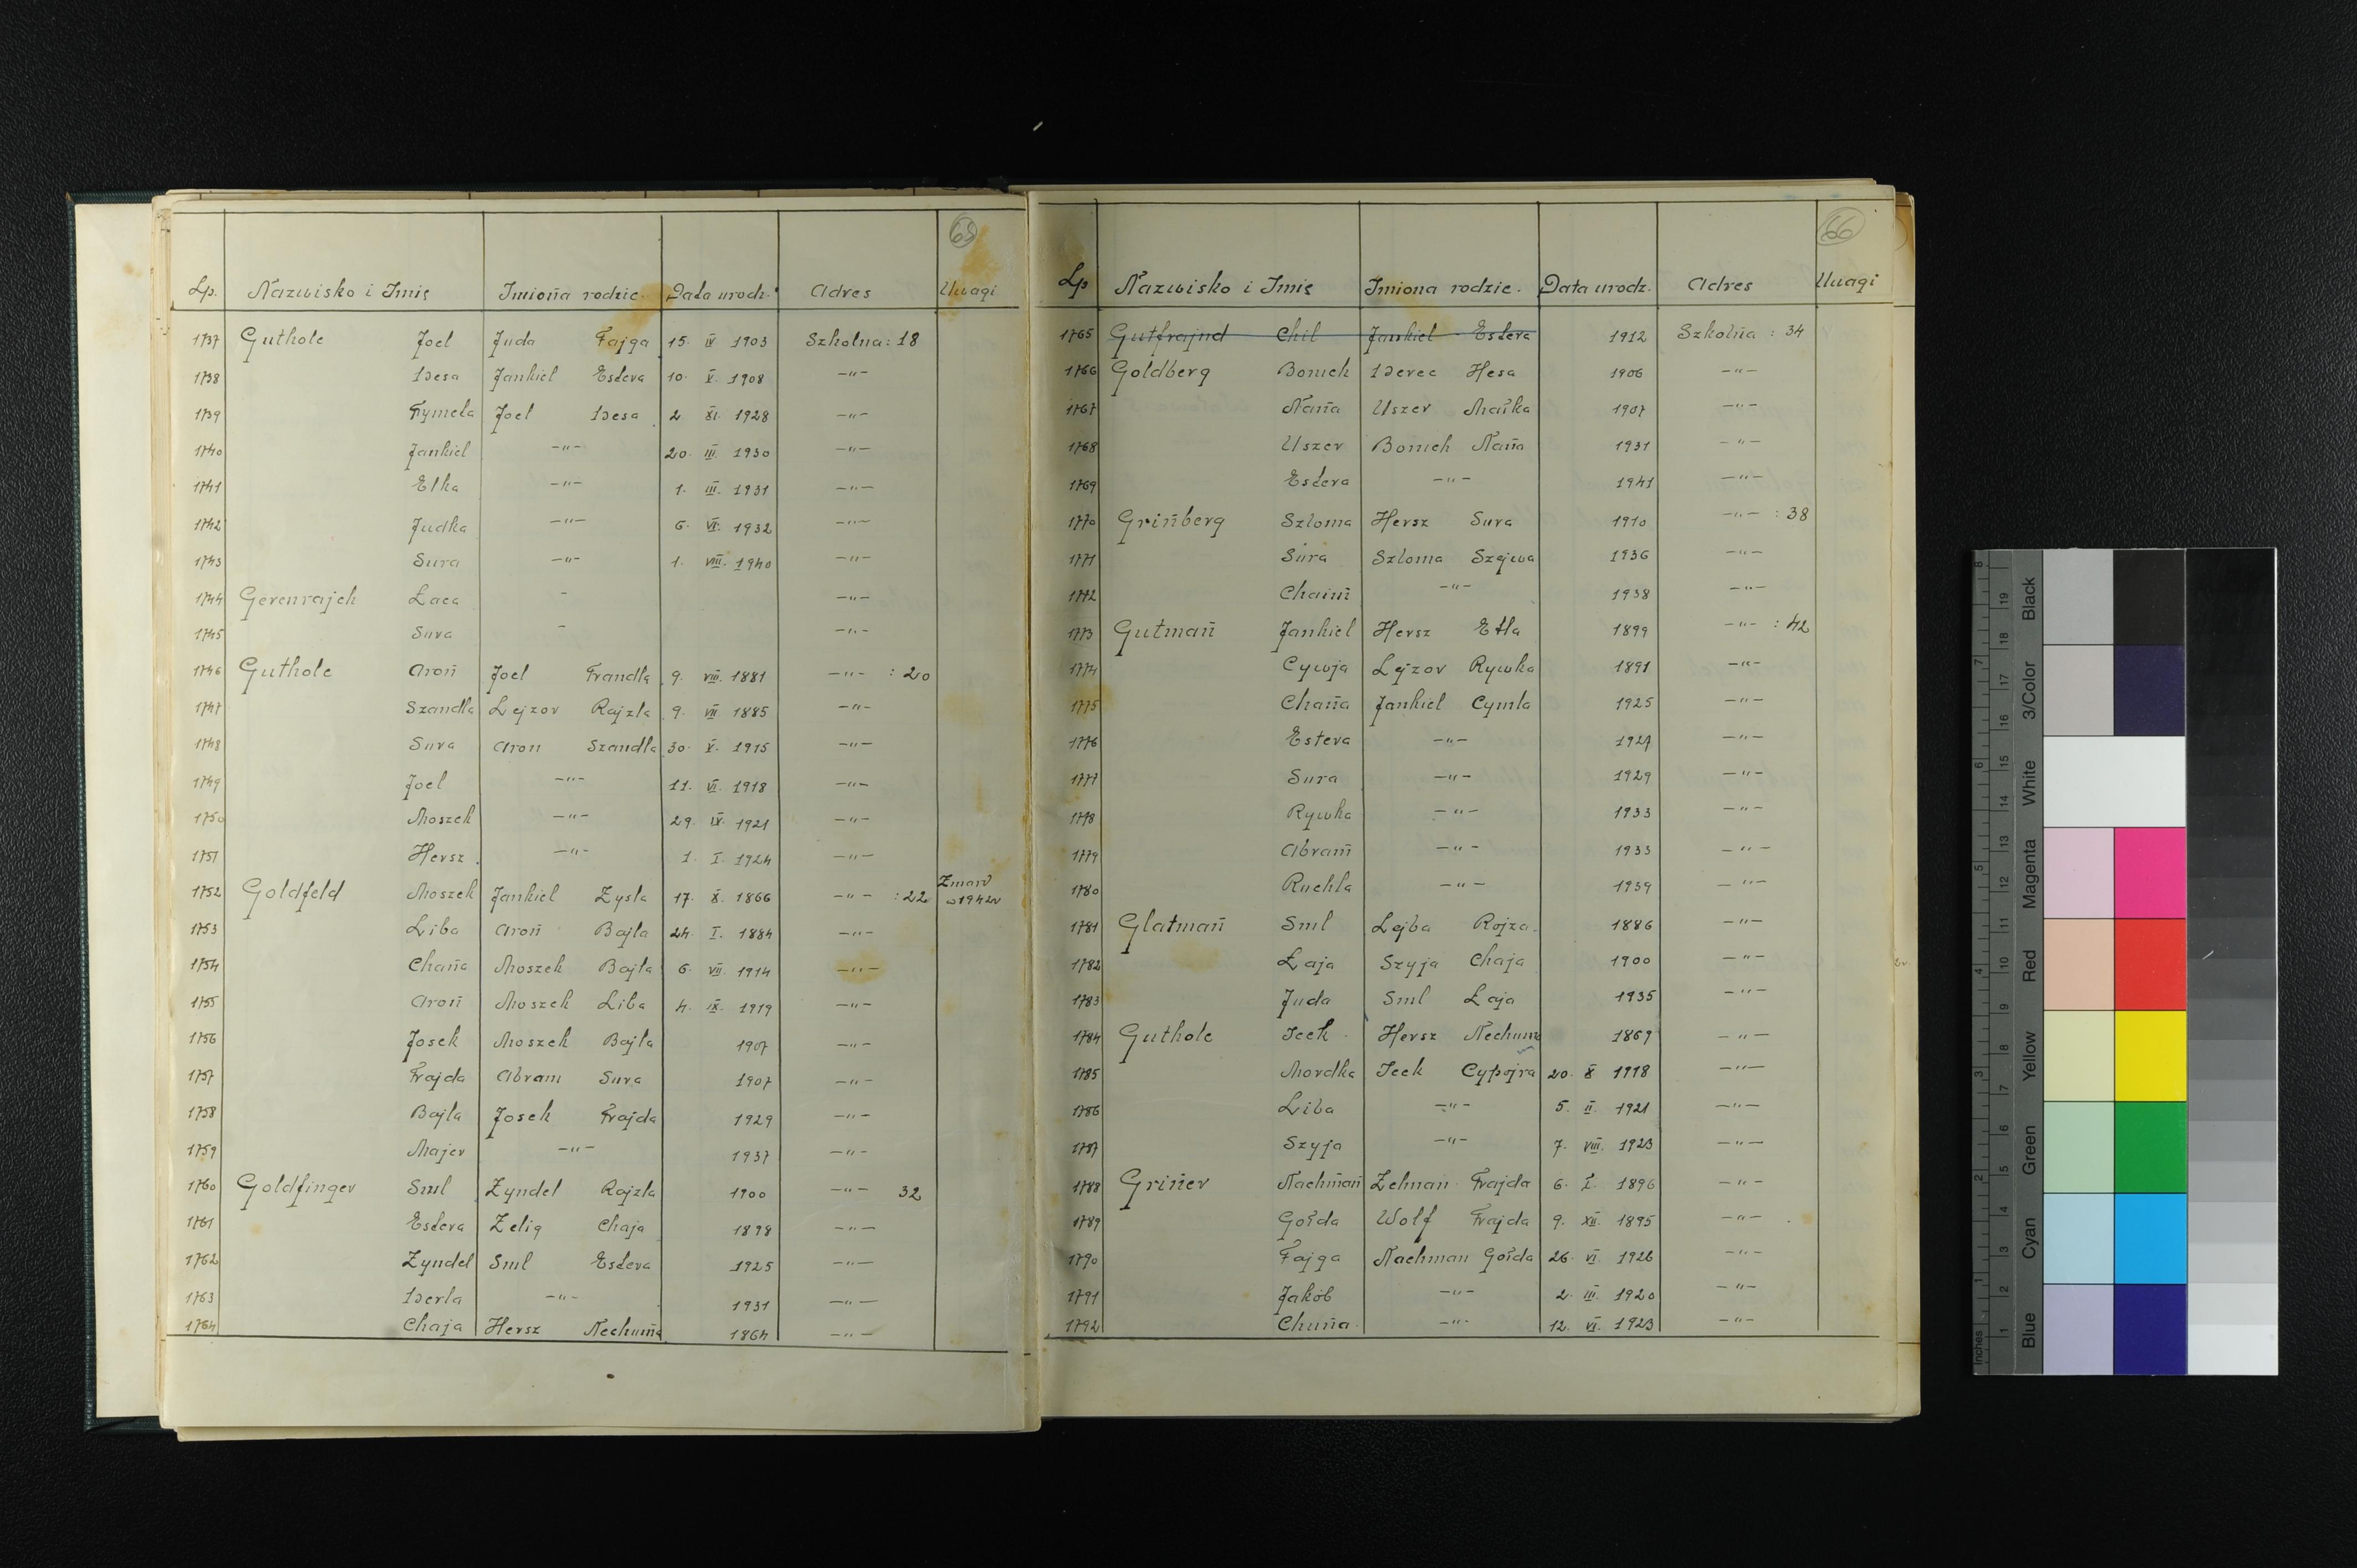 65
Lp. Nazwisko i Imię Imiona rodzic. Data urodz. Adres Uwagi
1737 Guthole Joel Juda Fajga 15. IV 1903 Szkolna : 18
1738 Idesa Jankiel Estera 10. X. 1908 —"—
1739 Frymeta Joel Idesa 2 XI. 1928 —"—
1740 Jankiel —"— 20. III. 1930 —"—
1741 Elka —"— 1. III. 1931 —"—
1742 Judka —"— 6. VI. 1932 —"—
1743 Sura —"— 1. VIII. 1940 —"—
1744 Gerenrajch - —"—
1745 Sura - —"—
1746 Guthole Aron Joel Frandla 9. VIII. 1881 —"— : 20
1747 Szandla Lejzor Rajzla 9. VII. 1885 —"—
1748 Sura Aron Szandla 30. X. 1915 —"—
1749 Joel —"— 11. VI. 1918 —"—
1750 Moszek —"— 29. IV. 1921 —"—
1751 Hersz —"— 1. I. 1924 —"—
1752 Goldfeld Moszek Jankiel Zysla 17. X. 1866 —"— : 22 Zmarł w 1942r
1753 Liba Aron Bajla 24. I. 1884 —"—
1754 Chana Moszek Bajla 6. VII. 1914 —"—
1755 Aron Moszek Liba 4. IX. 1919 —"—
1756 Josek Moszek Bajla 1907 —"—
1757 Frajda Abram Sura 1907 —"—
1758 Bajla Josek Frajda 1929 —"—
1759 Majer —"— 1937 —"—
1760 Goldfinger Sml Zyndel Rajzla 1900 —"— 32
1761 Estera Zelig Chaja 1898 —"—
1762 Zyndel Sml Estera 1925 —"—
1763 —"— 1931 —"—
1764 Chaja Hersz Nechuma 1864 —"—
66
Lp Nazwisko i Imię Imiona rodzic. Data urodz. Adres Uwagi
1765 Gutfrajnd Chil Jankiel Estera 1912 Szkolna : 34
1766 Goldberg Boruch Hesa 1906 —"—
1767 Nana Uszer Małka 1907 —"—
1768 Uszer Boruch Nana 1931 —"—
1769 Estera —"— 1941 —"—
1770 Grinberg Szloma Hersz Sura 1910 —"— : 38
1771 Sura Szloma Szejwa 1936 —"—
1772 Chaim —"— 1938 —"—
1773 Gutman Jankiel Hersz Etla 1899 —"— : 42
1774 Cywja Lejzor Rywka 1891 —"—
1775 Chana Jankiel Cymla 1925 —"—
1776 Estera —"— 1927 —"—
1777 Sura —"— 1929 —"—
1778 Rywka —"— 1933 —"—
1779 Abram —"— 1933 —"—
1780 Ruchla —"— 1939 —"—
1781 Glatman Sml Lejba Rojza 1886 —"—
1782 Łaja Szyja Chaja 1900 —"—
1783 Juda Sml Łaja 1935 —"—
1784 Guthole Icek Hersz Nechuma 1869 —"—
1785 Mordka Icek Cypojra 20. X 1918 —"—
1786 Liba —"— 5. II. 1921 —"—
1787 Szyja —"— 7. VIII. 1923 —"—
1788 Griner Nachman Zelman Frajda 6. I. 1896 —"—
1789 Gołda Wolf Frajda 9. XII. 1895 —"—
1790 Fajga Nachman Gołda 26. VI. 1926 —"—
1791 Jakób —"— 2. III. 1920 —"—
1792 Chuna —"— 12. VI. 1923 —"—
Inches 1 2 3 4 5 6 7 8
1 2 3 4 5 6 7 8 9 10 11 12 13 14 15 16 17 18 19
Blue Cyan Green Yellow Red Magenta White 3/Color Black